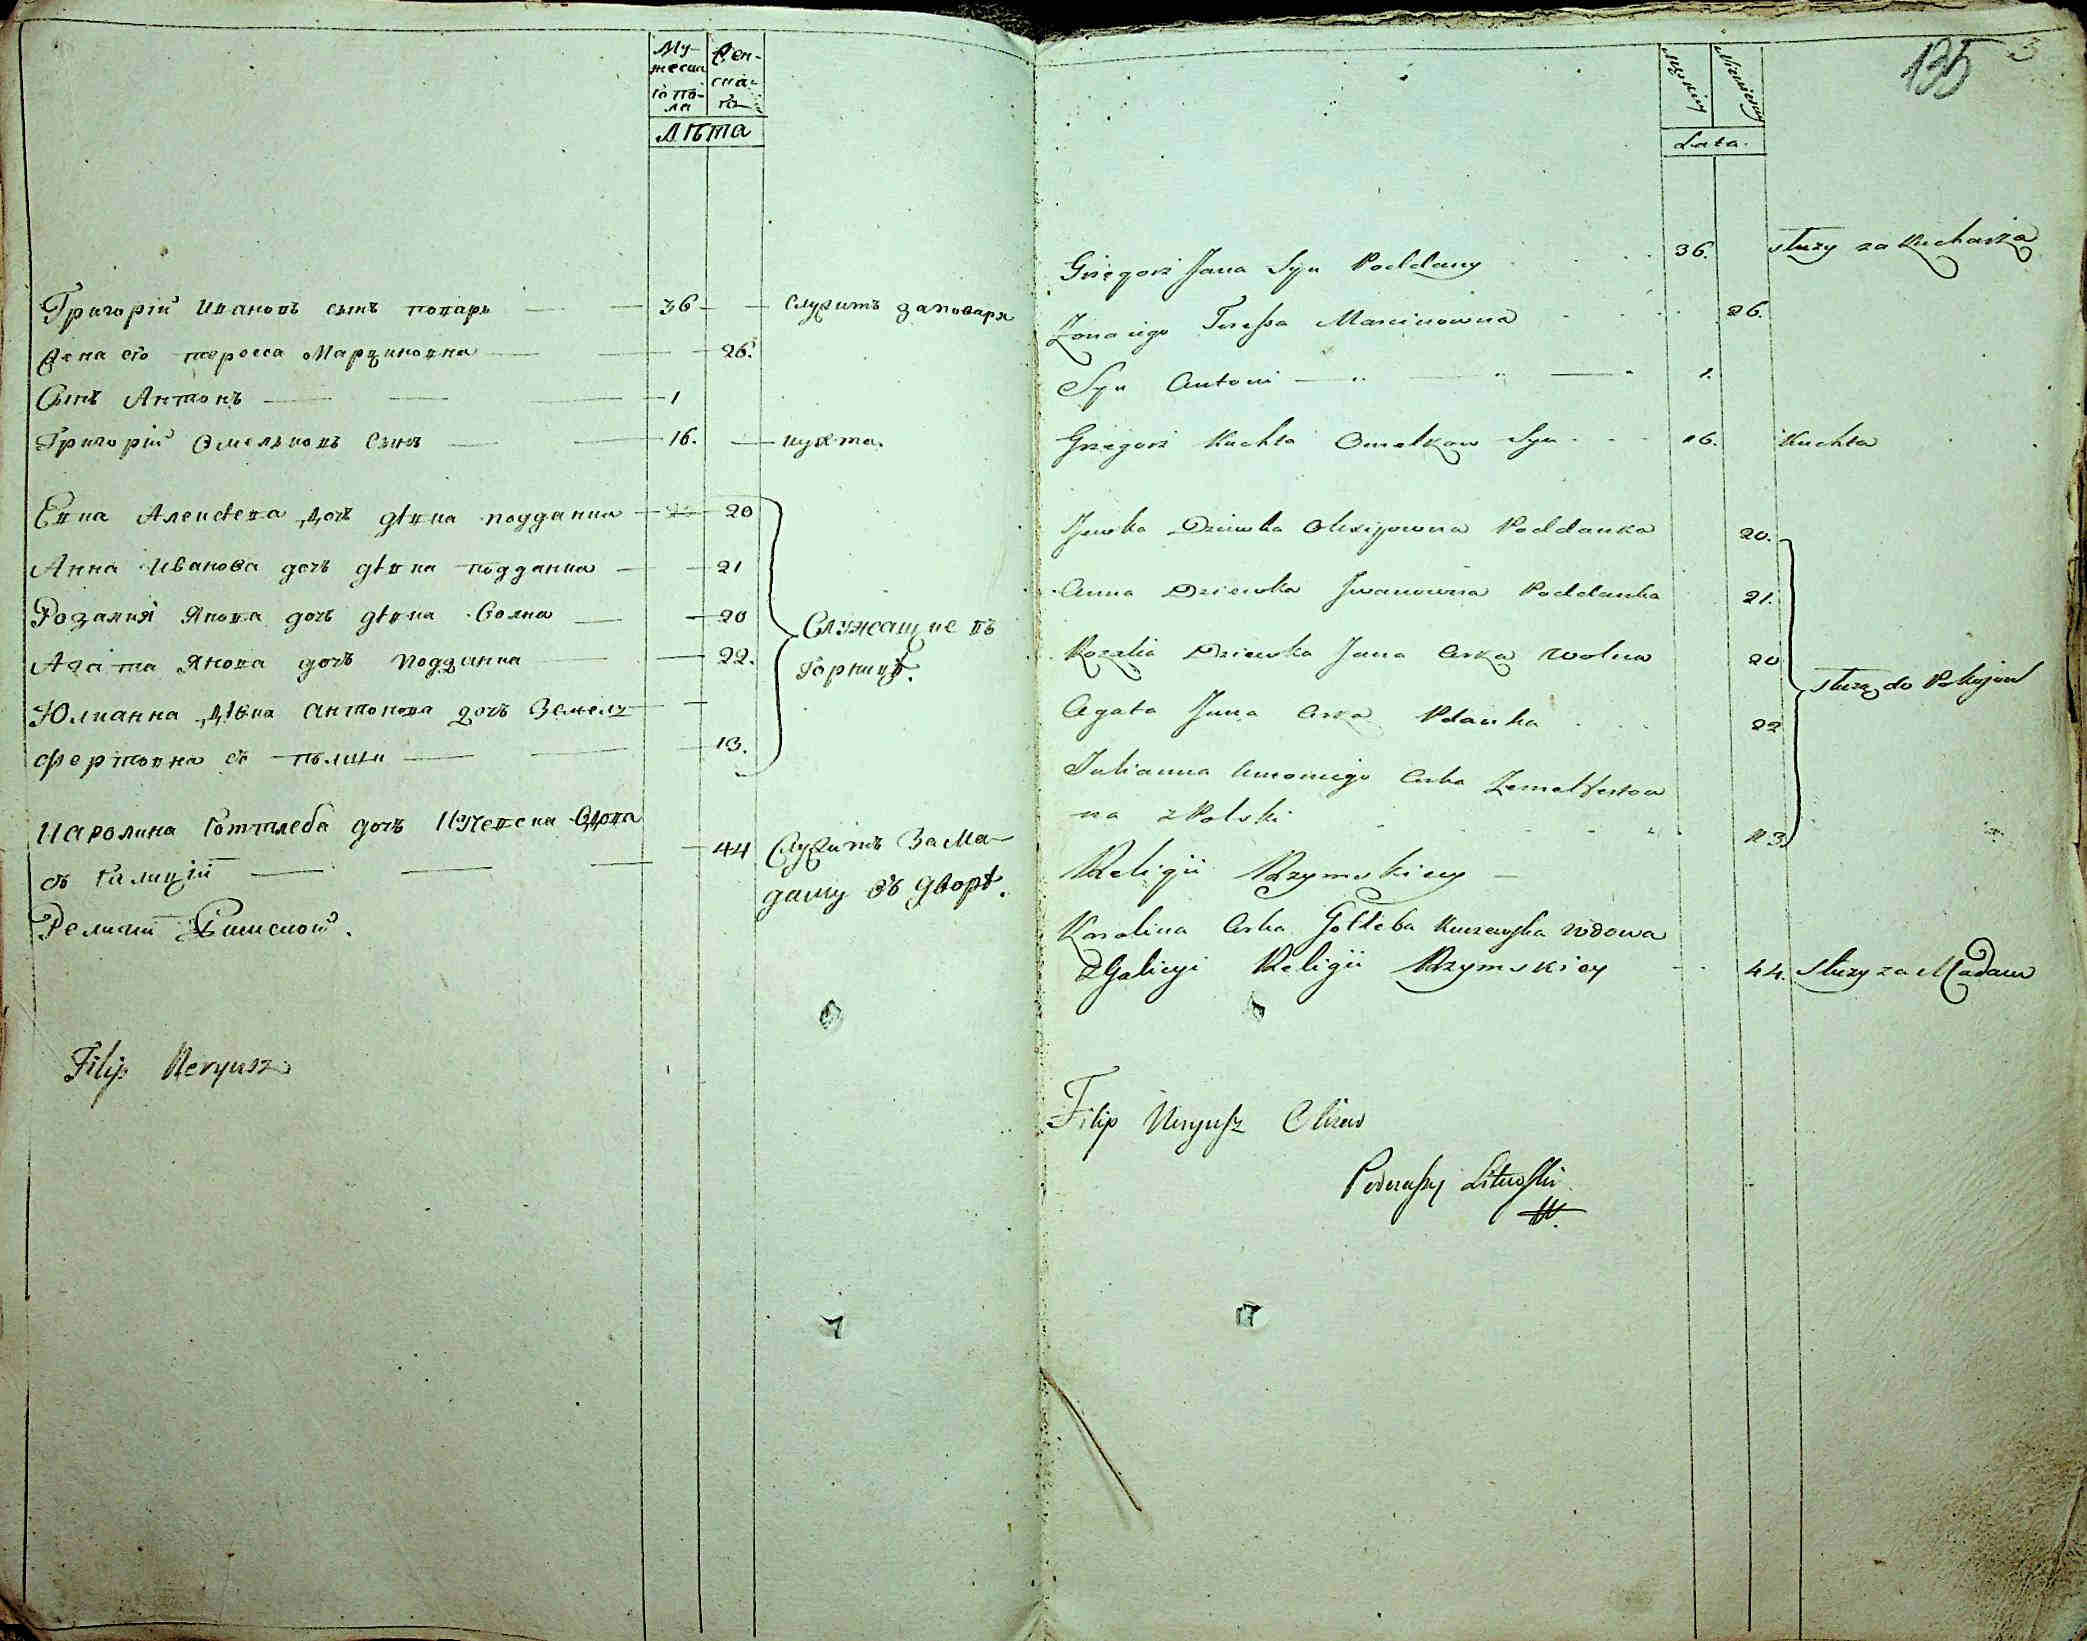 Му-
жеска
го по-
ла
Жен-
ска-
го
Лѣта
Григорій Ивановъ сынъ поваръ 36 служитъ за повара
Жена его тересса Марциновна 26.
Сынъ Антонъ 1
Григорій Омельковъ Сынъ 16. кухта.
Евка Алексѣева дочъ дѣвка подданка 20
Анна Иванова дочъ дѣвка подданка 21
Розалия Янова дочъ дѣвка Волна 20
Служащие въ
Агата Янова дочъ подданка 22.
Горницѣ.
Юлианна дѣвка антонова дочъ Земель
фертовна съ полши 13.
Каролина Готтлеба дочъ Кучевска Вдова
съ Галиціи 44 Служитъ За Ма-
даму въ дворѣ.
Религии Римской.
Filip Neryusz
135 3
Męzkiey
Lata.
Grzegorz Jana Syn Poddany 36. służy za Kucharza
Zona iego Teressa Marcinowna 26.
Syn Antoni 1.
Grzegorz Kuchta Omelkow Syn 16. Kuchta
Jewka Dziewka Olexijowna Poddanka 20.
Anna Dziewka Jwanowna Poddanka 21.
Rozalia Dziewka Jana Crka Wolna 20
służą do Pokojow
Agata Jana Crka Pdanka 22
Julianna Antoniego Crka Zemelfertow
na z Polski 13.
Religii Rzymskiey
Karolina Crka Gotleba Kuczewska Wdowa
z Galicyi Religii Rzymskiey 44. służy za Madam
Filip Neryusz Olizar
Podczaszy Litewski